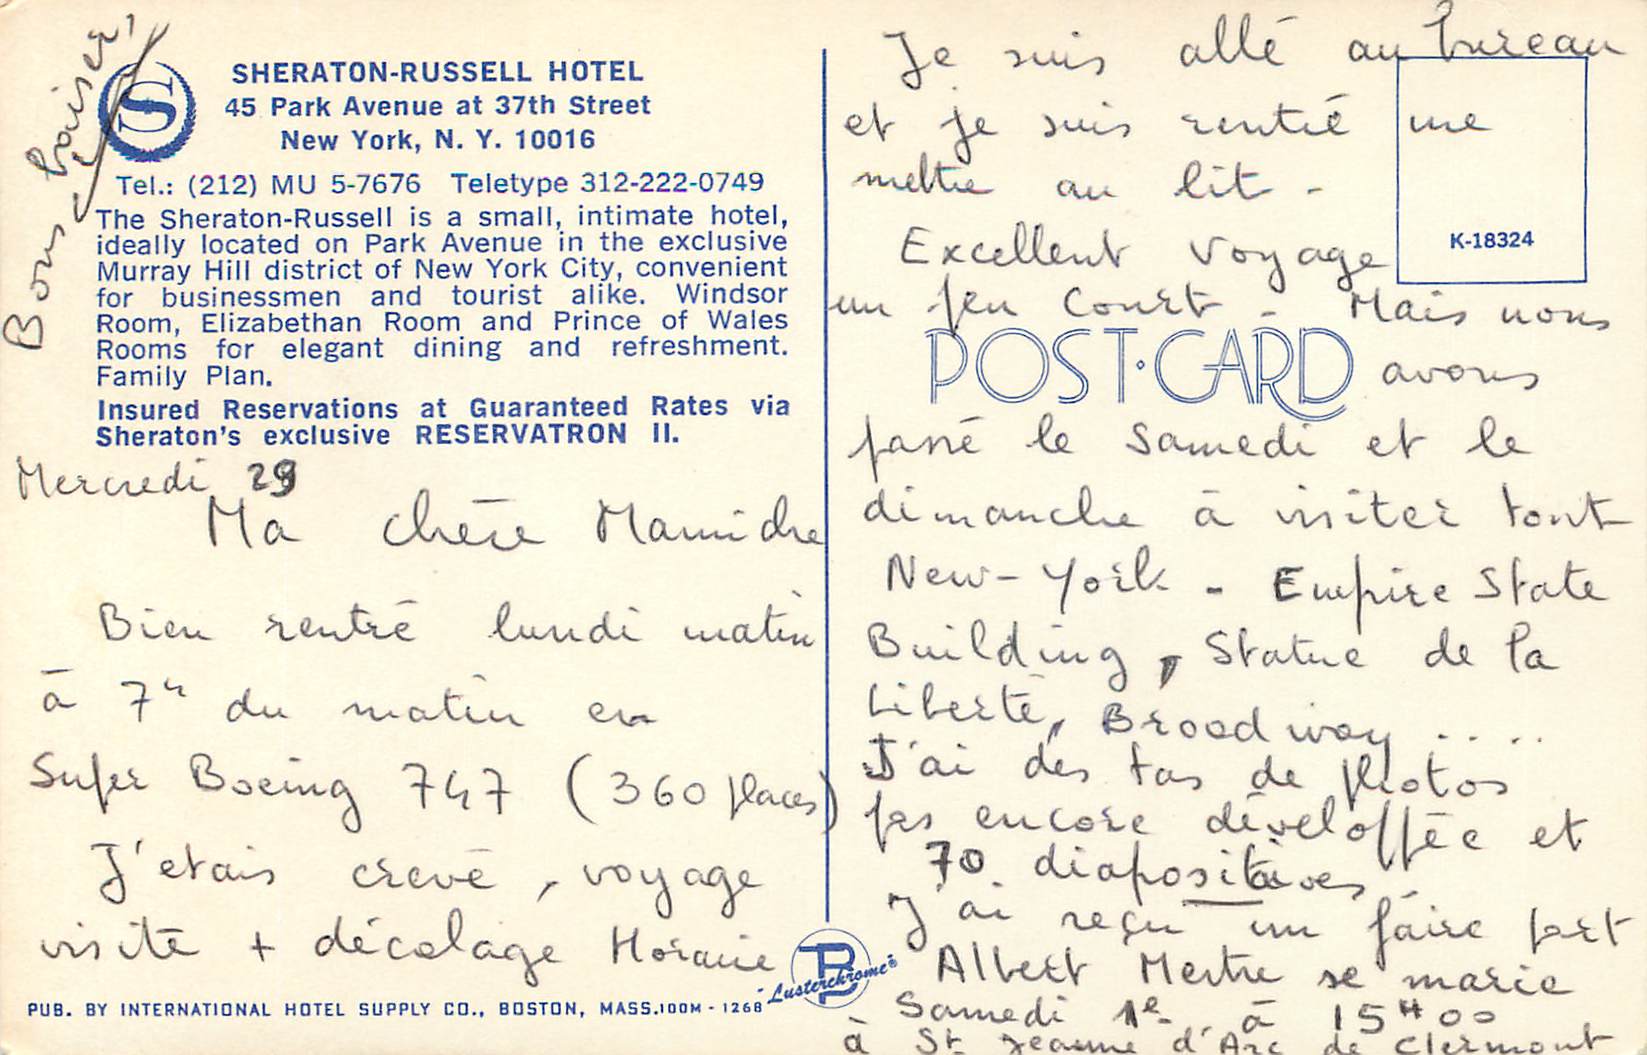 SHERATON-RUSSELL HOTEL
45 Park Avenue at 37th Street
New York, N. Y. 10016
Tel.: (212) MU 5-7676 Teletype 312-222-0749
The Sheraton-Russell is a small, intimate hotel,
ideally located on Park Avenue in the exclusive
Murray Hill district of New York City, convenient
for businessmen and tourist alike. Windsor
Room, Elizabethan Room and Prince of Wales
Rooms for elegant dining and refreshment.
Family Plan.
Insured Reservations at Guaranteed Rates via
Sheraton's exclusive RESERVATRON II.
Mercredi 29
Ma chère
Bien rentré lundi matin
à 7h du matin en
Super Boeing 747 (360 places)
J'etais crevé, voyage
visite + décalage Horaire
PUB. BY INTERNATIONAL HOTEL SUPPLY CO., BOSTON, MASS. 100M - 1268
Lusterchrome®
Je suis allé au bureau
et je suis rentré me
mettre au lit -
Excellent voyage
un peu court - Mais nous
avons
passé le samedi et le
dimanche à visiter tout
New-York - Empire State
Building, Statue de la
Liberté, Broadway ....
J'ai des tas de photos
pas encore développée et
70 diapositives
J'ai reçu un faire part
Albert Mestre se marie
Samedi 1e à 15H00
à St Jeanne d'Arc de Clermont
K-18324
POST·CARD
Bons baisers